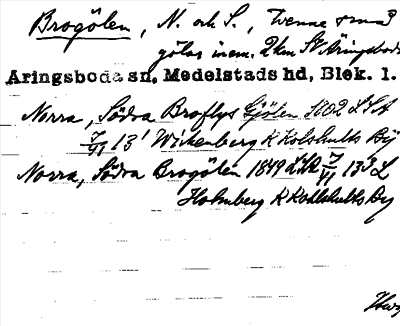 Brogölen, N. och S., Tvenne små
gölar inom 2 km SV Äringsboda
Aringsboda sn, Medelstads hd, Blek. l.
Norra, Södra Broflys Gjölen 1802 LSA
7/VI 13¹ Wickenberg K Kolshults By
Norra, Södra Brogölen 1849 LSA 7/VI 13³ L
Holmberg K Kohlshults By